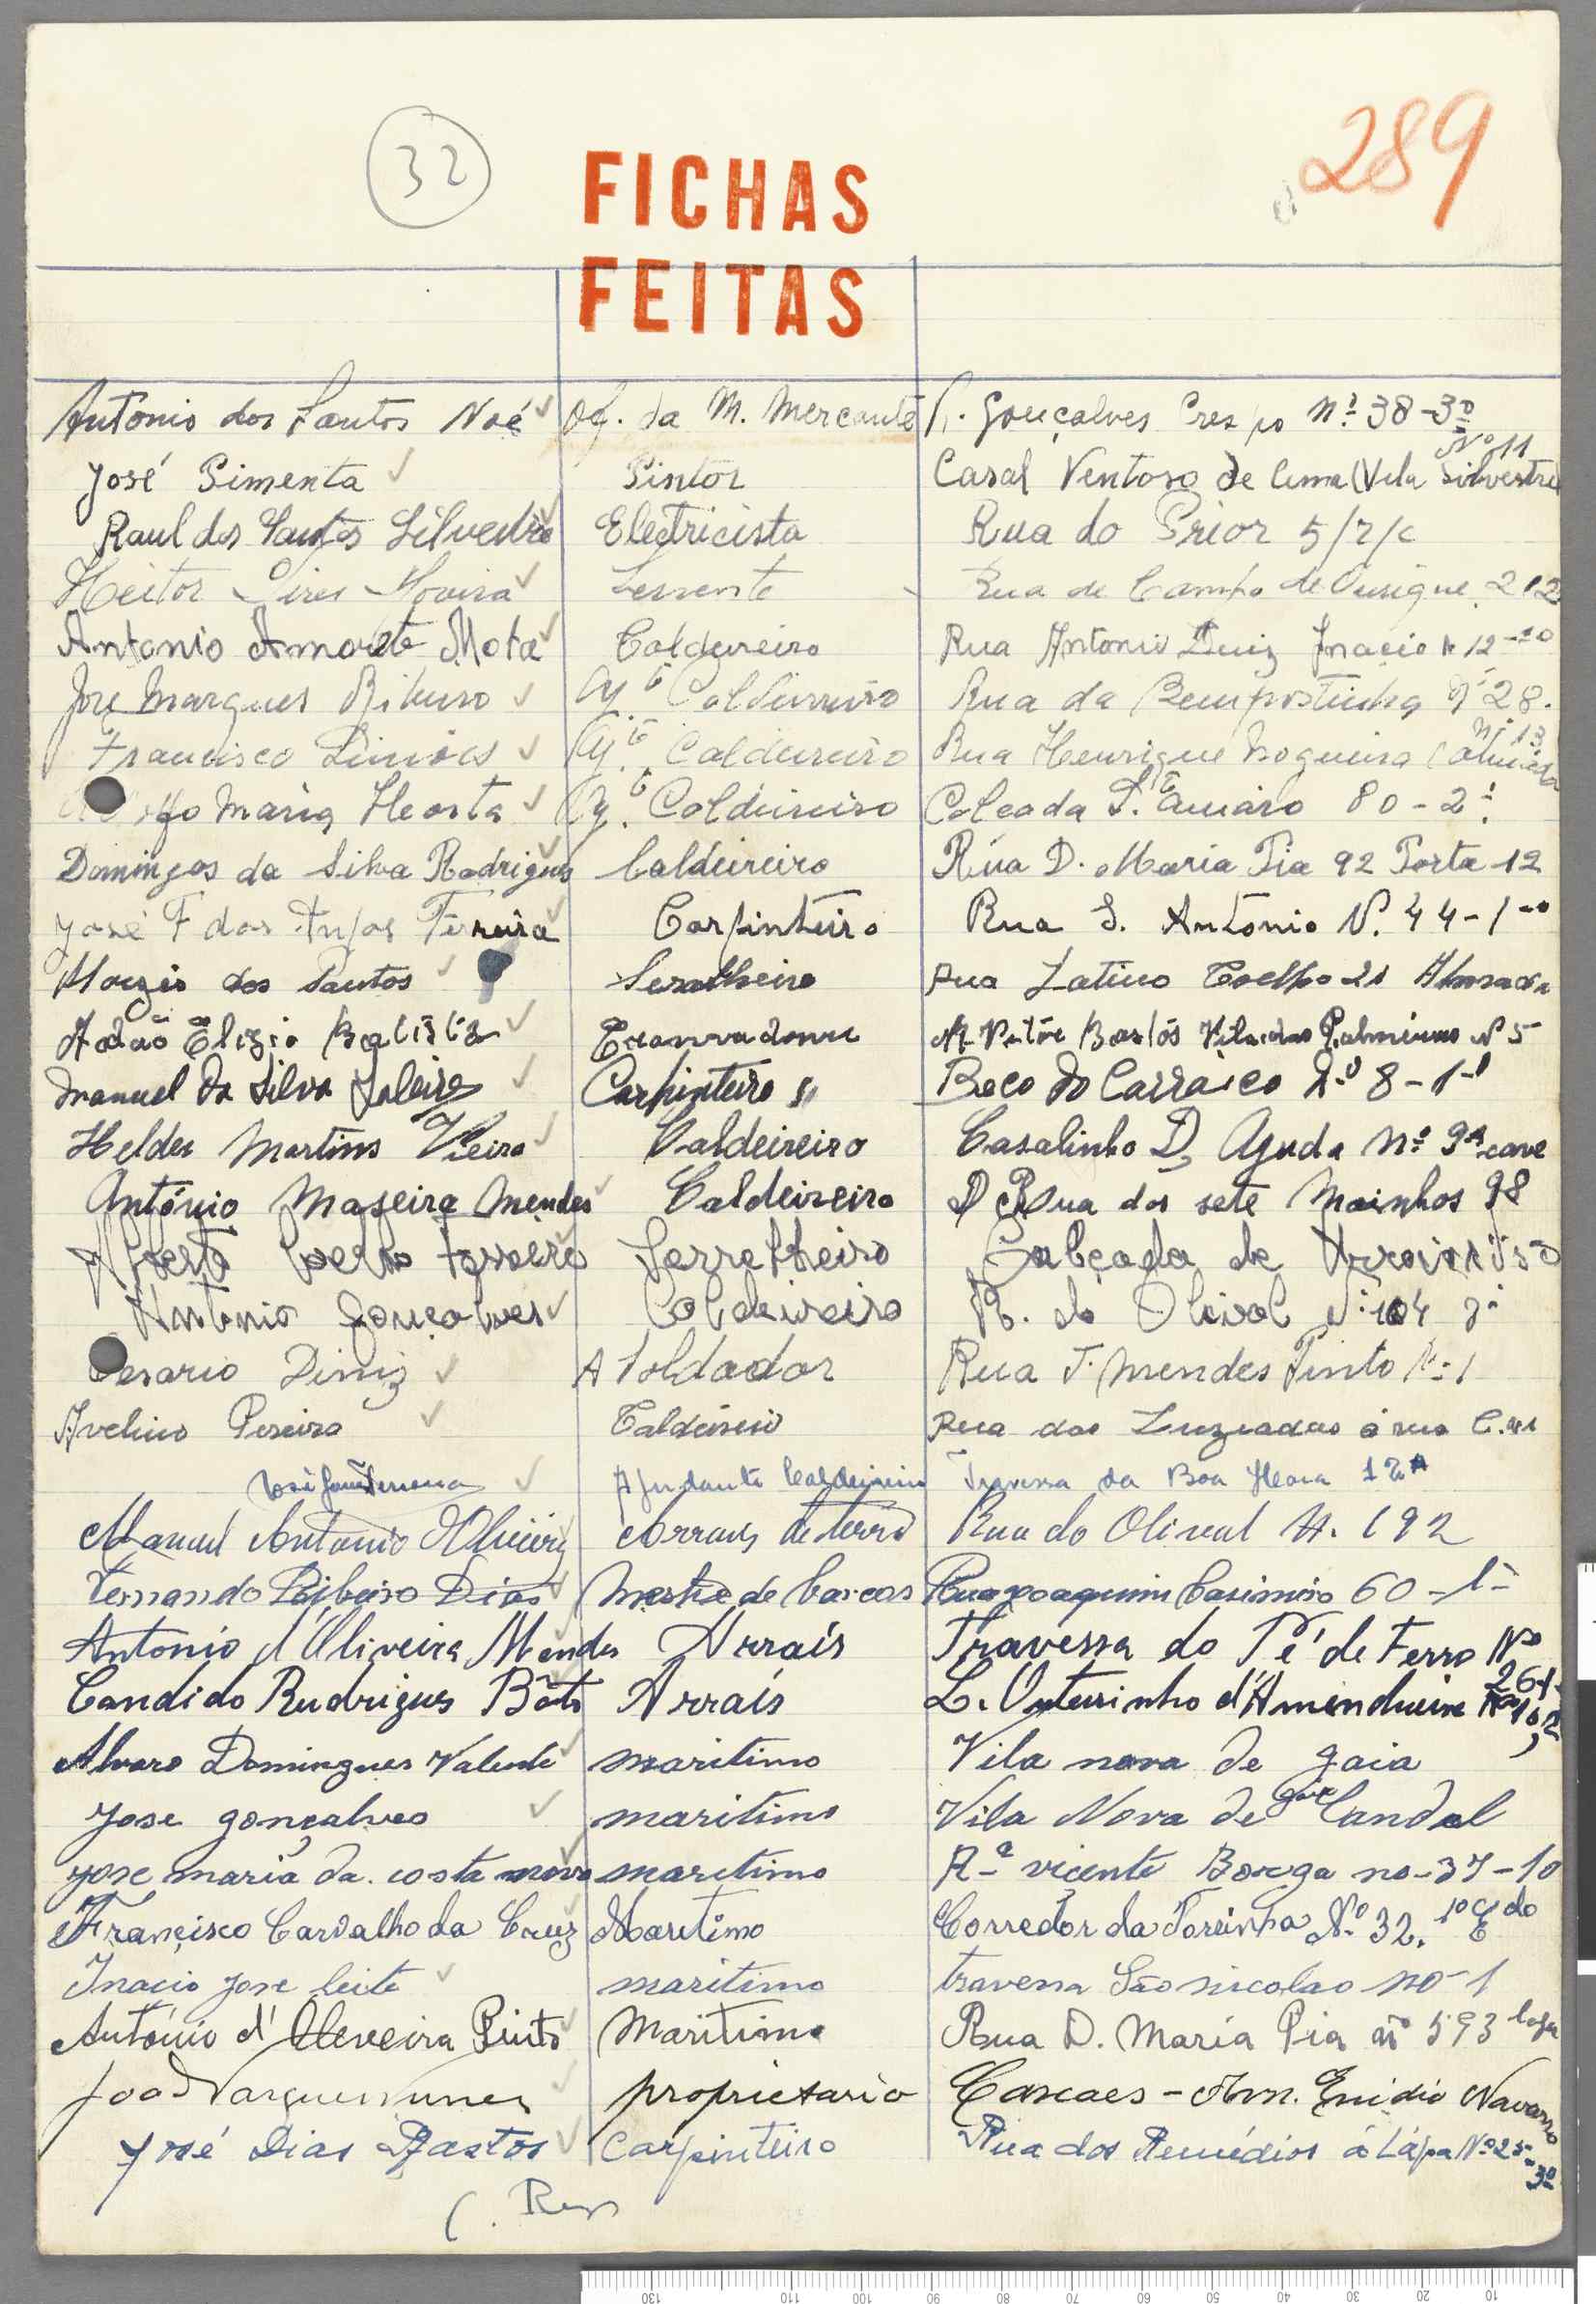 32
289
FICHAS
FEITAS
Antonio dos Santos Noé Of. da M. Mercante R. Gonçalves Crespo Nº 38-3º
José Pimenta Pintor Casal Ventoso de Cima (Vila Silvestre Nº 11
Raul dos Santos Silvestre Electricista Rua do Prior 5/r/c
Heitor Pires Moura Servente Rua de Campo de Ourique 212
Antonio Amorete Mota Caldereiro Rua Antonio Luiz Inacio Nº 12
José Marques Ribeiro Ay.te Caldeireiro Rua da Bempostinha Nº 28.
Francisco Simões Ay.te Caldeireiro Rua Henrique Nogueira Nº 13
Maria Heosta Ay.te Caldeireiro Calcada S.to Amáro 80-2º
Domingos da Silva Rodrigues Caldeireiro Rua D. Maria Pia 92 Porta 12
José F dos Anjos Ferreira Carpinteiro Rua S. Antonio N. 44-1
Moizés dos Santos Seralheiro Rua Latino Coelho 21 Almada
Adão Elizio Batista Vila das Palmeiras Nº 5
Manuel da Silva Carpinteiro Beco do Carrasco Nº 8-1º
Helder Martins Vieira Caldeireiro Casalinho D, Ajuda Nº 9 cave
António Maseira Mendes Caldeireiro Rua dos sete Moinhos 98
Alberto Coelho Ferreira Serralheiro Calçada de Arroios
Antonio Gonçalves Caldeireiro R. do Olival Nº 104
Cesario Diniz A Soldador Rua F. Mendes Pinto Nº 1
Avelino Pereira Caldeireiro Rua das Luziadas á rua
José Ferreira Ajudante Caldeireiro Travessa da Boa Hora 12 A
Manuel Antonio Oliveira Arrais de terra Rua do Olival N. 192
Fernando Ribeiro Dias Mestre de barcos Rua Joaquim Casimiro 60-1º
Antonio d'Oliveira Mendes Arraís Travessa do Pé de Ferro Nº 26-1
Candido Rudrigues Bôto Arraís L. Outeirinho d'Amendueira Nº 1, 2
Alvaro Domingues Valente maritimo Vila nova de gaia
Jose gonçalves maritimo Vila Nova de gaia Candal
jose maria da. costa novo maritimo R-a vicente Borga no-37-1o
Françisco Carvalho da Cruz Maritimo Corredor da Torrinha Nº 32. 1º Edo
Inacio Jose leite maritimo travessa São nicolao no-1
António d'Oleveira Pinto Maritimo Rua D. Maria Pia nº 593 loja
João Vasques Nunes proprietario Cascaes - Avn. Emidio Navarro
José Dias Bastos Carpinteiro Rua dos Remédios á Lápa Nº 25-3º